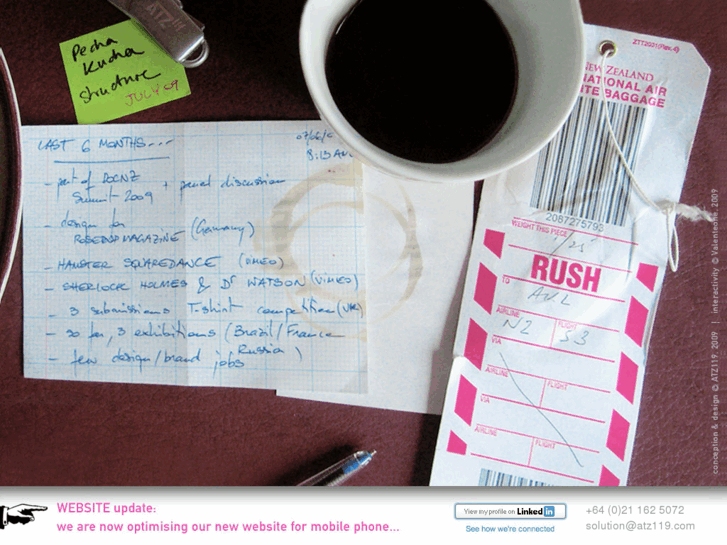 ATZ119
Pecha
Kucha
Structure
JULY 09
LAST 6 MONTHS...
8:15 AKL
- part of DOCNZ
Summit 2009 + panel discussion
- design for
ROSEDROP MAGAZINE (Germany)
- HAMSTER SQUAREDANCE (VIMEO)
- SHERLOCK HOLMES & Dr WATSON (VIMEO)
- 3 submissions T-shirt competition (UK)
- so far, 3 exhibitions (Brazil/France
Russia)
- few design/brand jobs
ZTT2001(Rev.4)
NEW ZEALAND
NATIONAL AIR
BAGGAGE
2087275793
WEIGHT THIS PIECE
1/25
RUSH
TO
AKL
AIRLINE
FLIGHT
NZ
53
VIA
AIRLINE
FLIGHT
VIA
AIRLINE
FLIGHT
conception & design © ATZ119 2009 | interactivity © 2009
WEBSITE update:
we are now optimising our new website for mobile phone...
View my profile on LinkedIn
See how we're connected
+64 (0)21 162 5072
solution@atz119.com